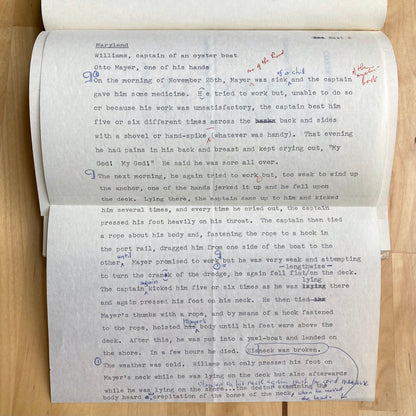 Maryland
Williams, captain of an oyster boat
Otto Mayer, one of his hands
one of the hands
of a chill
On the morning of November 25th, Mayer was sick and the captain
gave him some medicine. He tried to work but, unable to do so
or because his work was unsatisfactory, the captain beat him
five or six different times across the back and sides
with a shovel or hand-spike (whatever was handy). That evening
he had pains in his back and breast and kept crying out, "My
God! My God!" He said he was sore all over.
The next morning, he again tried to work but, too weak to wind up
the anchor, one of the hands jerked it up and he fell upon
the deck. Lying there, the captain came up to him and kicked
him several times, and every time he cried out, the captain
pressed his foot heavily on his throat. The captain then tied
a rope about his body and, fastening the rope to a hook in
the port rail, dragged him from one side of the boat to the
other, until Mayer promised to work but he was very weak and attempting
—lengthwise—
to turn the crank of the dredge, he again fell flat on the deck.
again
lying
The captain kicked him five or six times as he was lying there
and again pressed his foot on his neck. He then tied
Mayer's thumbs with a rope, and by means of a hook fastened
Mayer's
to the rope, hoisted his body until his feet were above the
deck. After this, he was put into a yawl-boat and landed on
the shore. In a few hours he died. His neck was broken.
The weather was cold. Williams not only pressed his foot on
Mayer's neck while he was lying on the deck but also afterwards
while he was lying on the shore... the doctor examining the
body heard crepitation of the bones of the neck when he moved
the head.